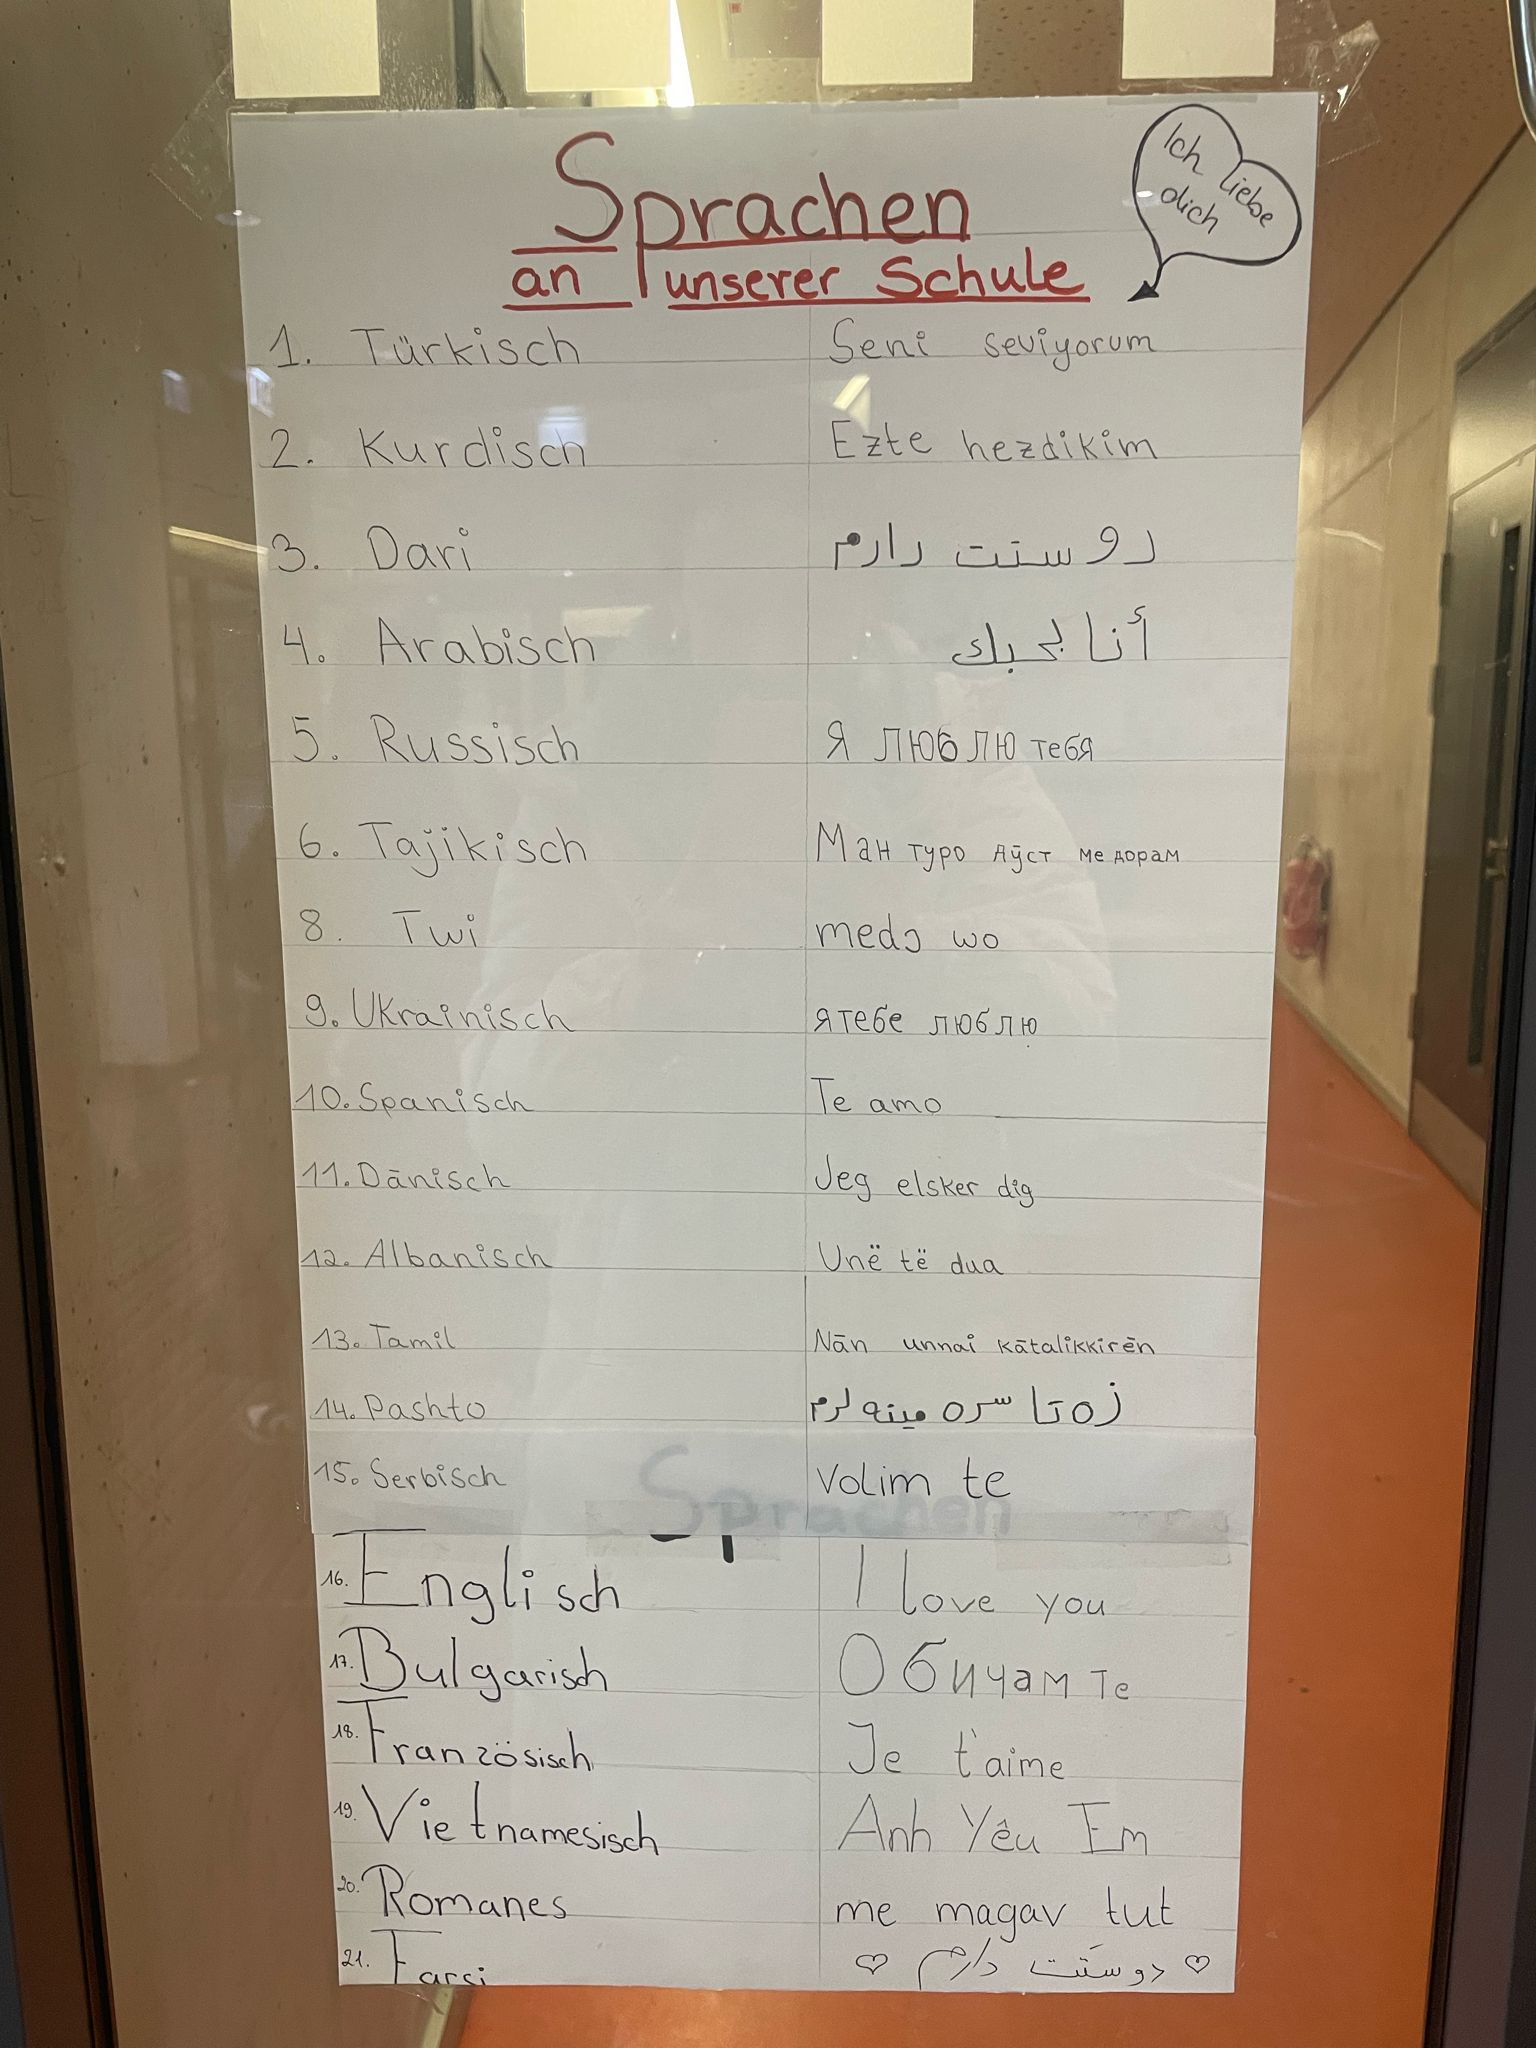 Sprachen
an unserer Schule
Ich liebe
dich
1. Türkisch Seni seviyorum
2. Kurdisch Ezte hezdikim
3. Dari دوستت دارم
4. Arabisch أنا بحبك
5. Russisch Я люблю тебя
6. Tajikisch Ман туро дӯст медорам
8. Twi medɔ wo
9. Ukrainisch я тебе люблю
10. Spanisch Te amo
11. Dänisch Jeg elsker dig
12. Albanisch Unë të dua
13. Tamil Nān unnai kātalikkirēn
14. Pashto زه تا سره مينه لرم
15. Serbisch Volim te
Sprachen
16. Englisch I love you
17. Bulgarisch Обичам те
18. Französisch Je t'aime
19. Vietnamesisch Anh Yêu Em
20. Romanes me magav tut
21. Farsi ♡ دوستَت دارم ♡